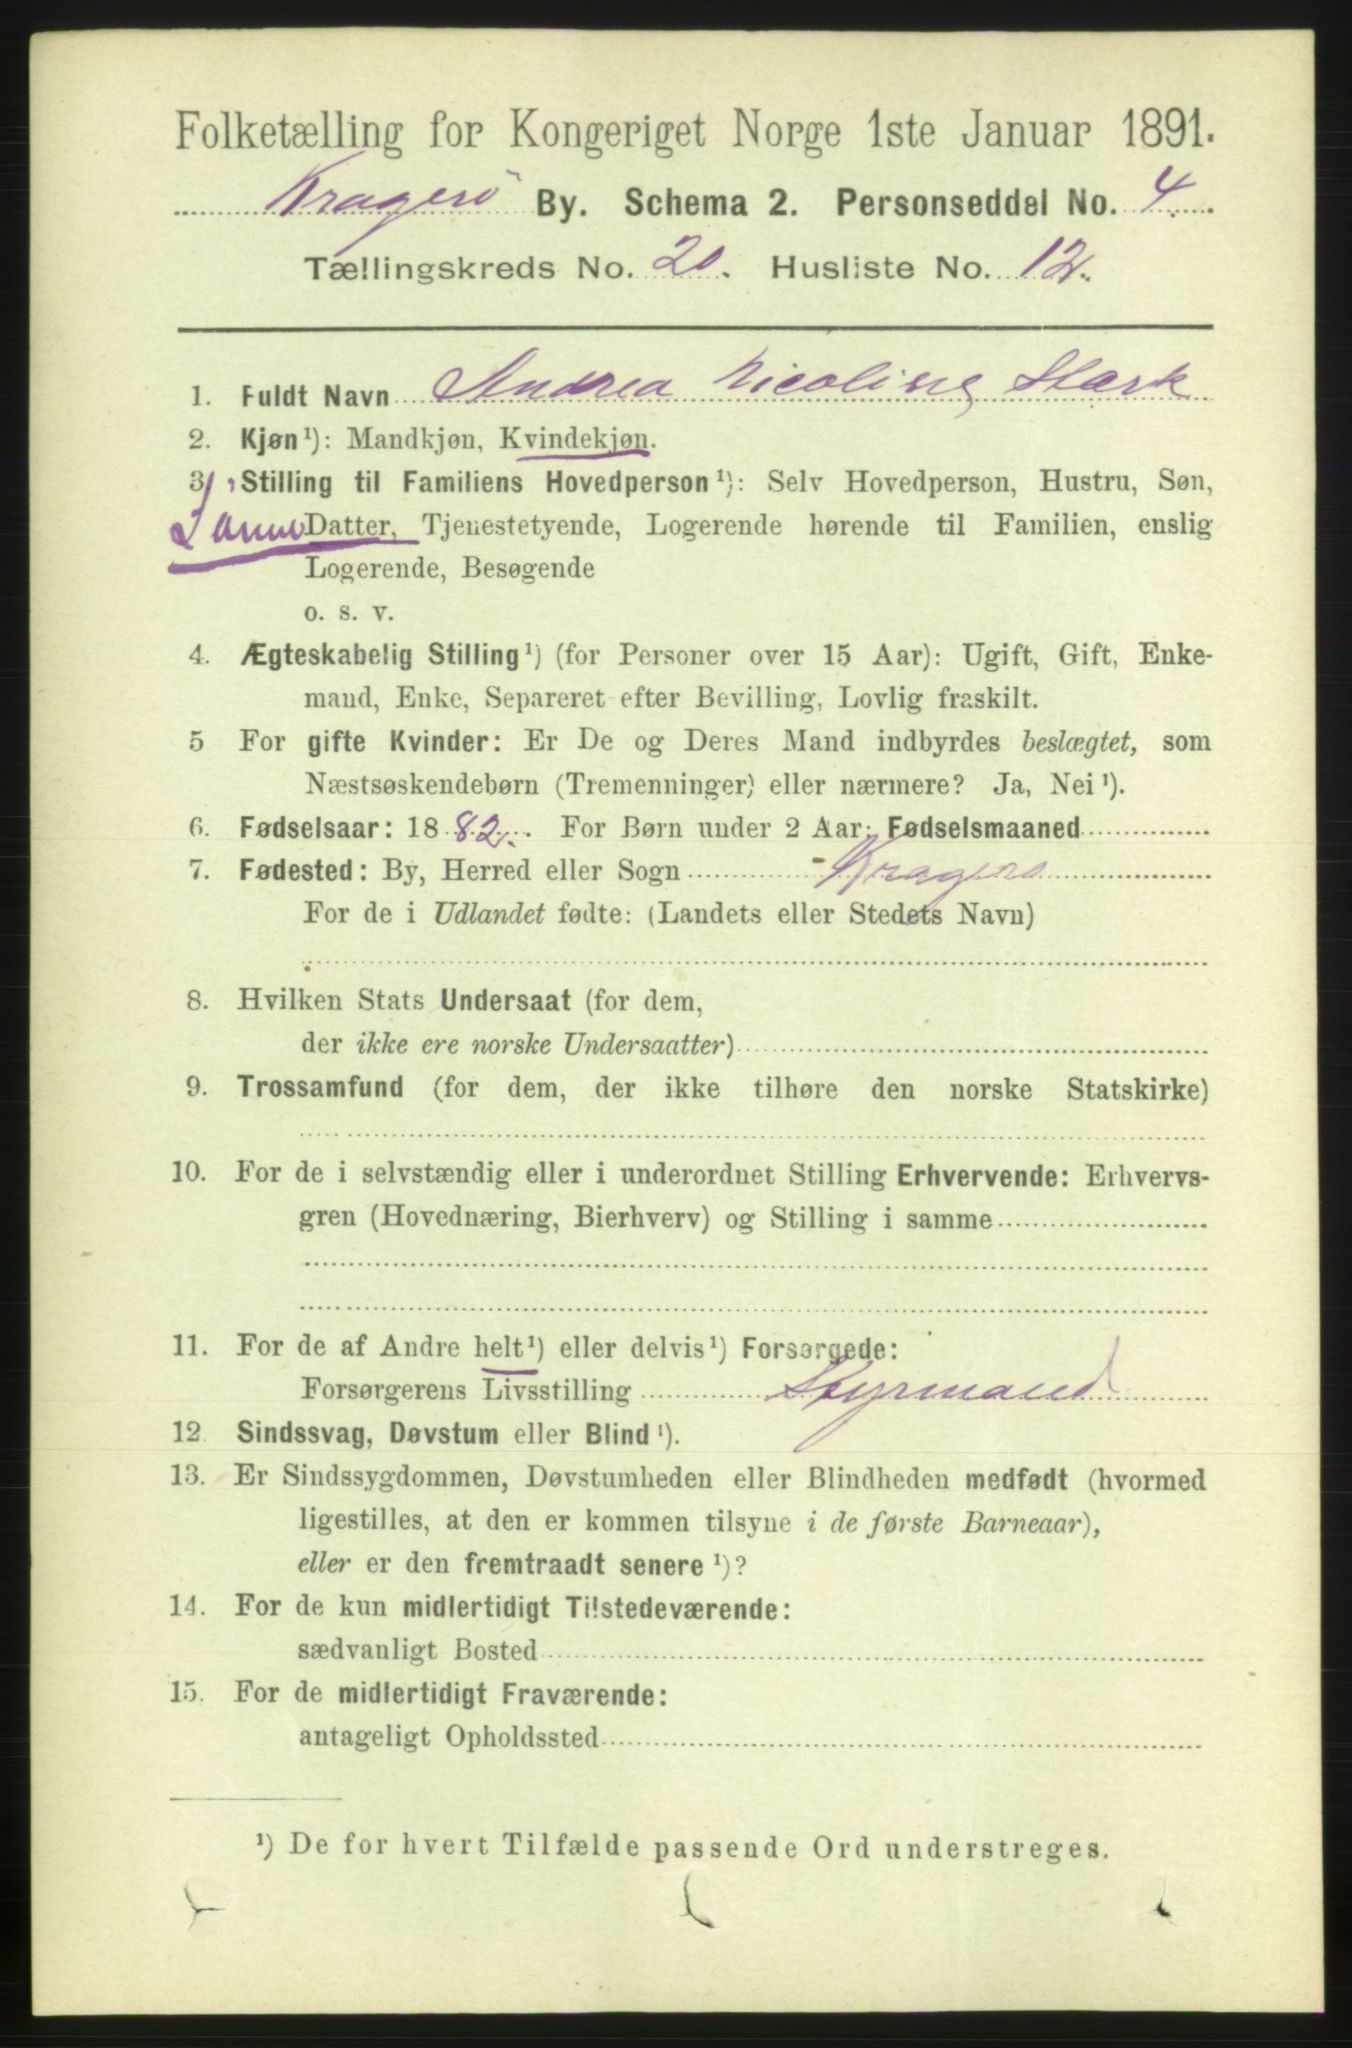 Folketælling for Kongeriget Norge 1ste Januar 1891.
Kragerö By. Schema 2. Personseddel No. 4.
Tællingskreds No. 20. Husliste No. 12.
1. Fuldt Navn Andrea Nicoline Stærk
2. Kjøn¹): Mandkjøn, Kvindekjøn.
3. Stilling til Familiens Hovedperson¹): Selv Hovedperson, Hustru, Søn,
Datter, Tjenestetyende, Logerende hørende til Familien, enslig
Logerende, Besøgende
o. s. v.
4. Ægteskabelig Stilling¹) (for Personer over 15 Aar): Ugift, Gift, Enke-
mand, Enke, Separeret efter Bevilling, Lovlig fraskilt.
5 For gifte Kvinder: Er De og Deres Mand indbyrdes beslægtet, som
Næstsøskendebørn (Tremenninger) eller nærmere? Ja, Nei¹).
6. Fødselsaar: 1882. For Børn under 2 Aar: Fødselsmaaned
7. Fødested: By, Herred eller Sogn Kragerø
For de i Udlandet fødte: (Landets eller Stedets Navn)
8. Hvilken Stats Undersaat (for dem,
der ikke ere norske Undersaatter)
9. Trossamfund (for dem, der ikke tilhøre den norske Statskirke)
10. For de i selvstændig eller i underordnet Stilling Erhvervende: Erhvervs-
gren (Hovednæring, Bierhverv) og Stilling i samme
11. For de af Andre helt¹) eller delvis¹) Forsørgede:
Forsørgerens Livsstilling Styrmand
12. Sindssvag, Døvstum eller Blind¹).
13. Er Sindssygdommen, Døvstumheden eller Blindheden medfødt (hvormed
ligestilles, at den er kommen tilsyne i de første Barneaar),
eller er den fremtraadt senere¹)?
14. For de kun midlertidigt Tilstedeværende:
sædvanligt Bosted
15. For de midlertidigt Fraværende:
antageligt Opholdssted
¹) De for hvert Tilfælde passende Ord understreges.